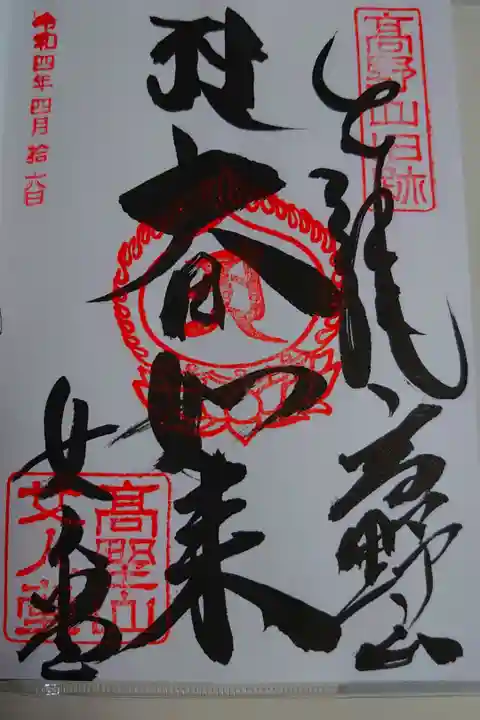 高野山旧跡
奉拝 高野山
大日如来
女人堂
高野山
女人堂
令和四年四月拾六日